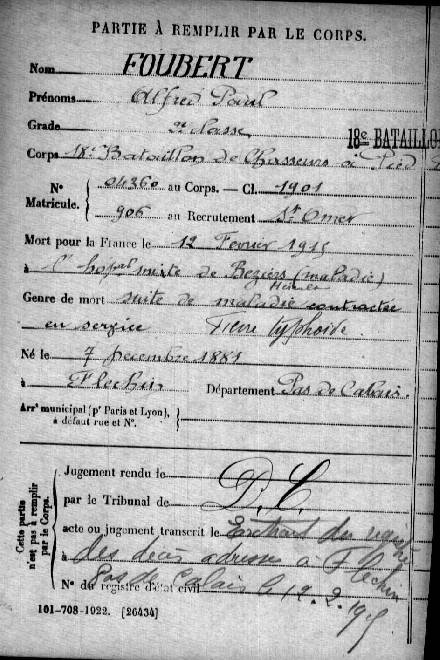 PARTIE À REMPLIR PAR LE CORPS.
Nom FOUBERT
Prénoms Alfred Paul
Grade 2e classe
18e BATAILLON
Corps 18e Bataillon de Chasseurs à Pied
No Matricule. 04360 au Corps. — Cl. 1901
906 au Recrutement St Omer
Mort pour la France le 12 Février 1915
à l'hôpal mixte de Beziers (maladie)
Hérault
Genre de mort suite de maladie contractée
en service Fièvre typhoïde.
Né le 7 Décembre 1881
à Flechin Département Pas de Calais.
Arrt municipal (pr Paris et Lyon),
à défaut rue et No.
Cette partie n'est pas à remplir par le Corps.
Jugement rendu le
par le Tribunal de D.C.
acte ou jugement transcrit le Extrait du registre
à des décès adressé à Flechin
Pas de Calais le 19.2.1915
No du registre d'état civil
101-708-1922. [26434]